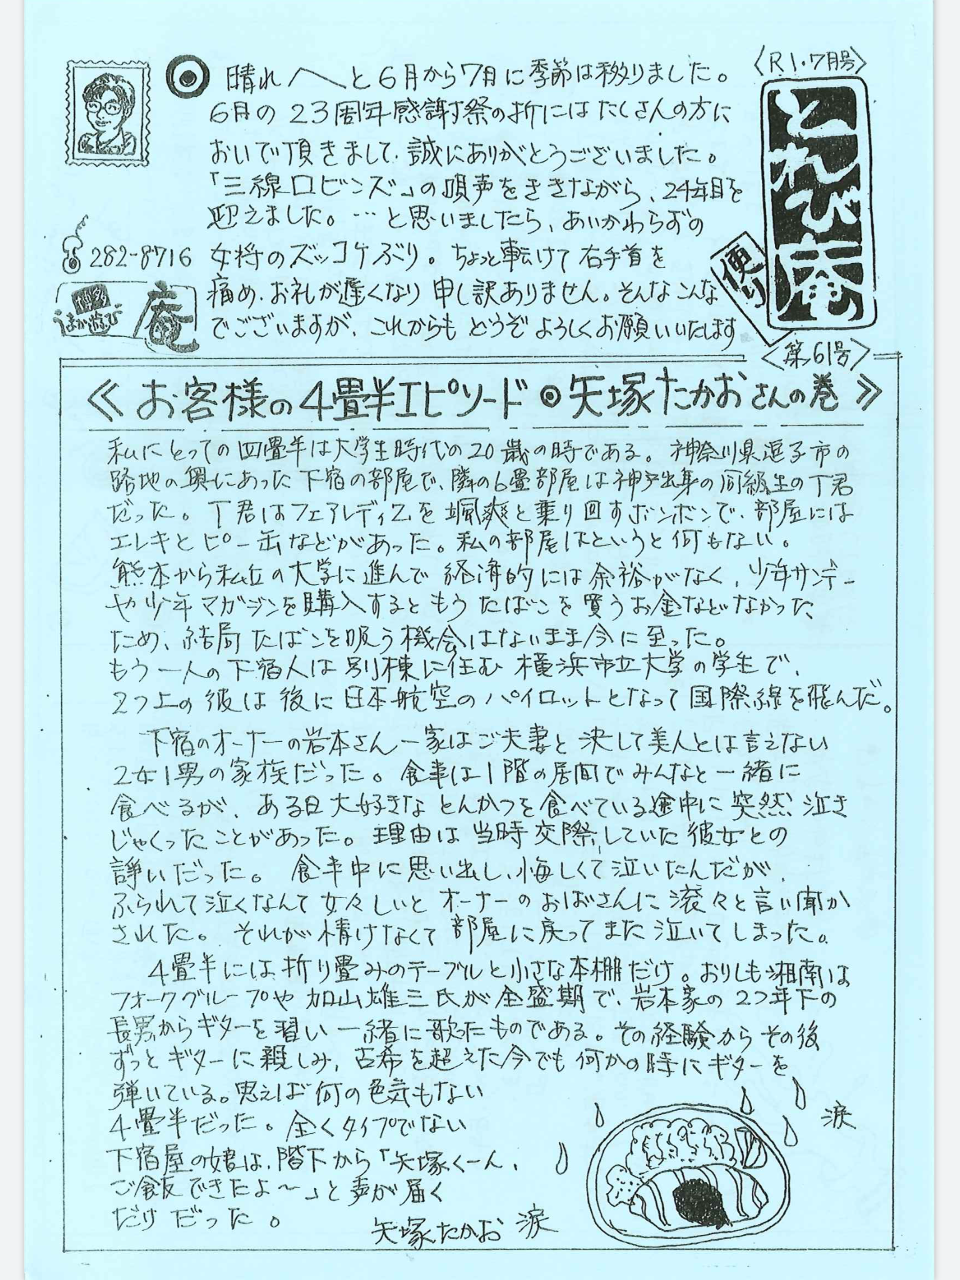 〈R1・7月号〉
とれび庵
便り
〈第61号〉
晴れへと6月から7月に季節は移りました。
6月の23周年感謝祭の折にはたくさんの方に
おいで頂きまして、誠にありがとうございました。
「三線ロビンズ」の唄声をききながら、24年目を
迎えました。…と思いましたら、あいかわらずの
女将のズッコケぶり。ちょっと転けて右手首を
痛め、お礼が遅くなり申し訳ありません。そんなこんな
でございますが、これからもどうぞよろしくお願いいたします
282-8716
博多
うまか遊び
庵
《お客様の4畳半エピソード◎矢塚たかおさんの巻》
私にとっての四畳半は大学生時代の20歳の時である。神奈川県逗子市の
路地の奥にあった下宿の部屋で、隣の6畳部屋は神戸出身の同級生のT君
だった。T君はフェアレディZを颯爽と乗り回すボンボンで、部屋には
エレキとピー缶などがあった。私の部屋はというと何もない。
熊本から私立の大学に進んで経済的には余裕がなく、少年サンデー
や少年マガジンを購入するともうたばこを買うお金などなかった
ため、結局たばこを吸う機会はないまま今に至った。
もう一人の下宿人は別棟に住む横浜市立大学の学生で、
2つ上の彼は後に日本航空のパイロットとなって国際線を飛んだ。
下宿のオーナーの岩本さん一家はご夫妻と決して美人とは言えない
2女1男の家族だった。食事は1階の居間でみんなと一緒に
食べるが、ある日大好きなとんかつを食べている途中に突然泣き
じゃくったことがあった。理由は当時交際していた彼女との
諍いだった。食事中に思い出し、悔しくて泣いたんだが、
ふられて泣くなんて女々しいとオーナーのおばさんに滾々と言い聞か
された。それが情けなくて部屋に戻ってまた泣いてしまった。
4畳半には折り畳みのテーブルと小さな本棚だけ。おりしも湘南は
フォークグループや加山雄三氏が全盛期で、岩本家の2つ年下の
長男からギターを習い一緒に歌ったものである。その経験からその後
ずっとギターに親しみ、古希を超えた今でも何かの時にギターを
弾いている。思えば何の色気もない
4畳半だった。全くタイプでない
下宿屋の娘は、階下から「矢塚くーん、
ご飯できたよ〜」と声が届く
だけだった。
矢塚たかお 涙
涙